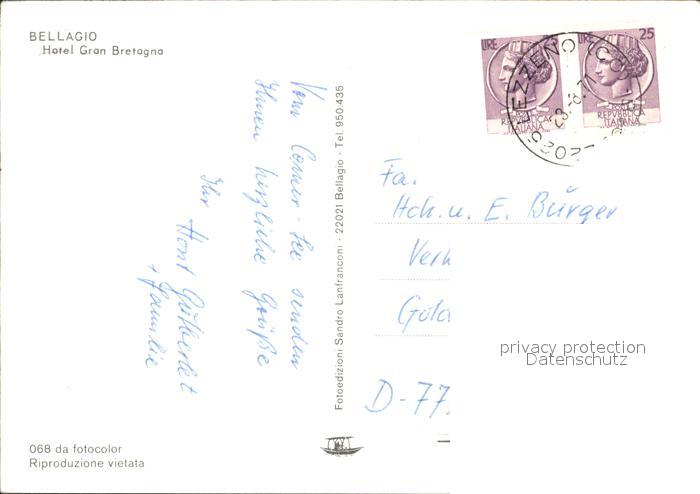 BELLAGIO
Hotel Gran Bretagna
Vom Comer-See senden
Ihnen herzliche Grüße
Ihr Horst
+ Familie
Fotoedizioni Sandro Lanfranconi - 22021 Bellagio - Tel. 950.435
LIRE
LIRE 25
REPVBBLICA
ITALIANA
REPVBBLICA
ITALIANA
LEZZENO (CO)
23.-8.71
22025
Fa.
Hch. u. E. Bürger
Verk
Gold
D-77
privacy protection
Datenschutz
068 da fotocolor
Riproduzione vietata